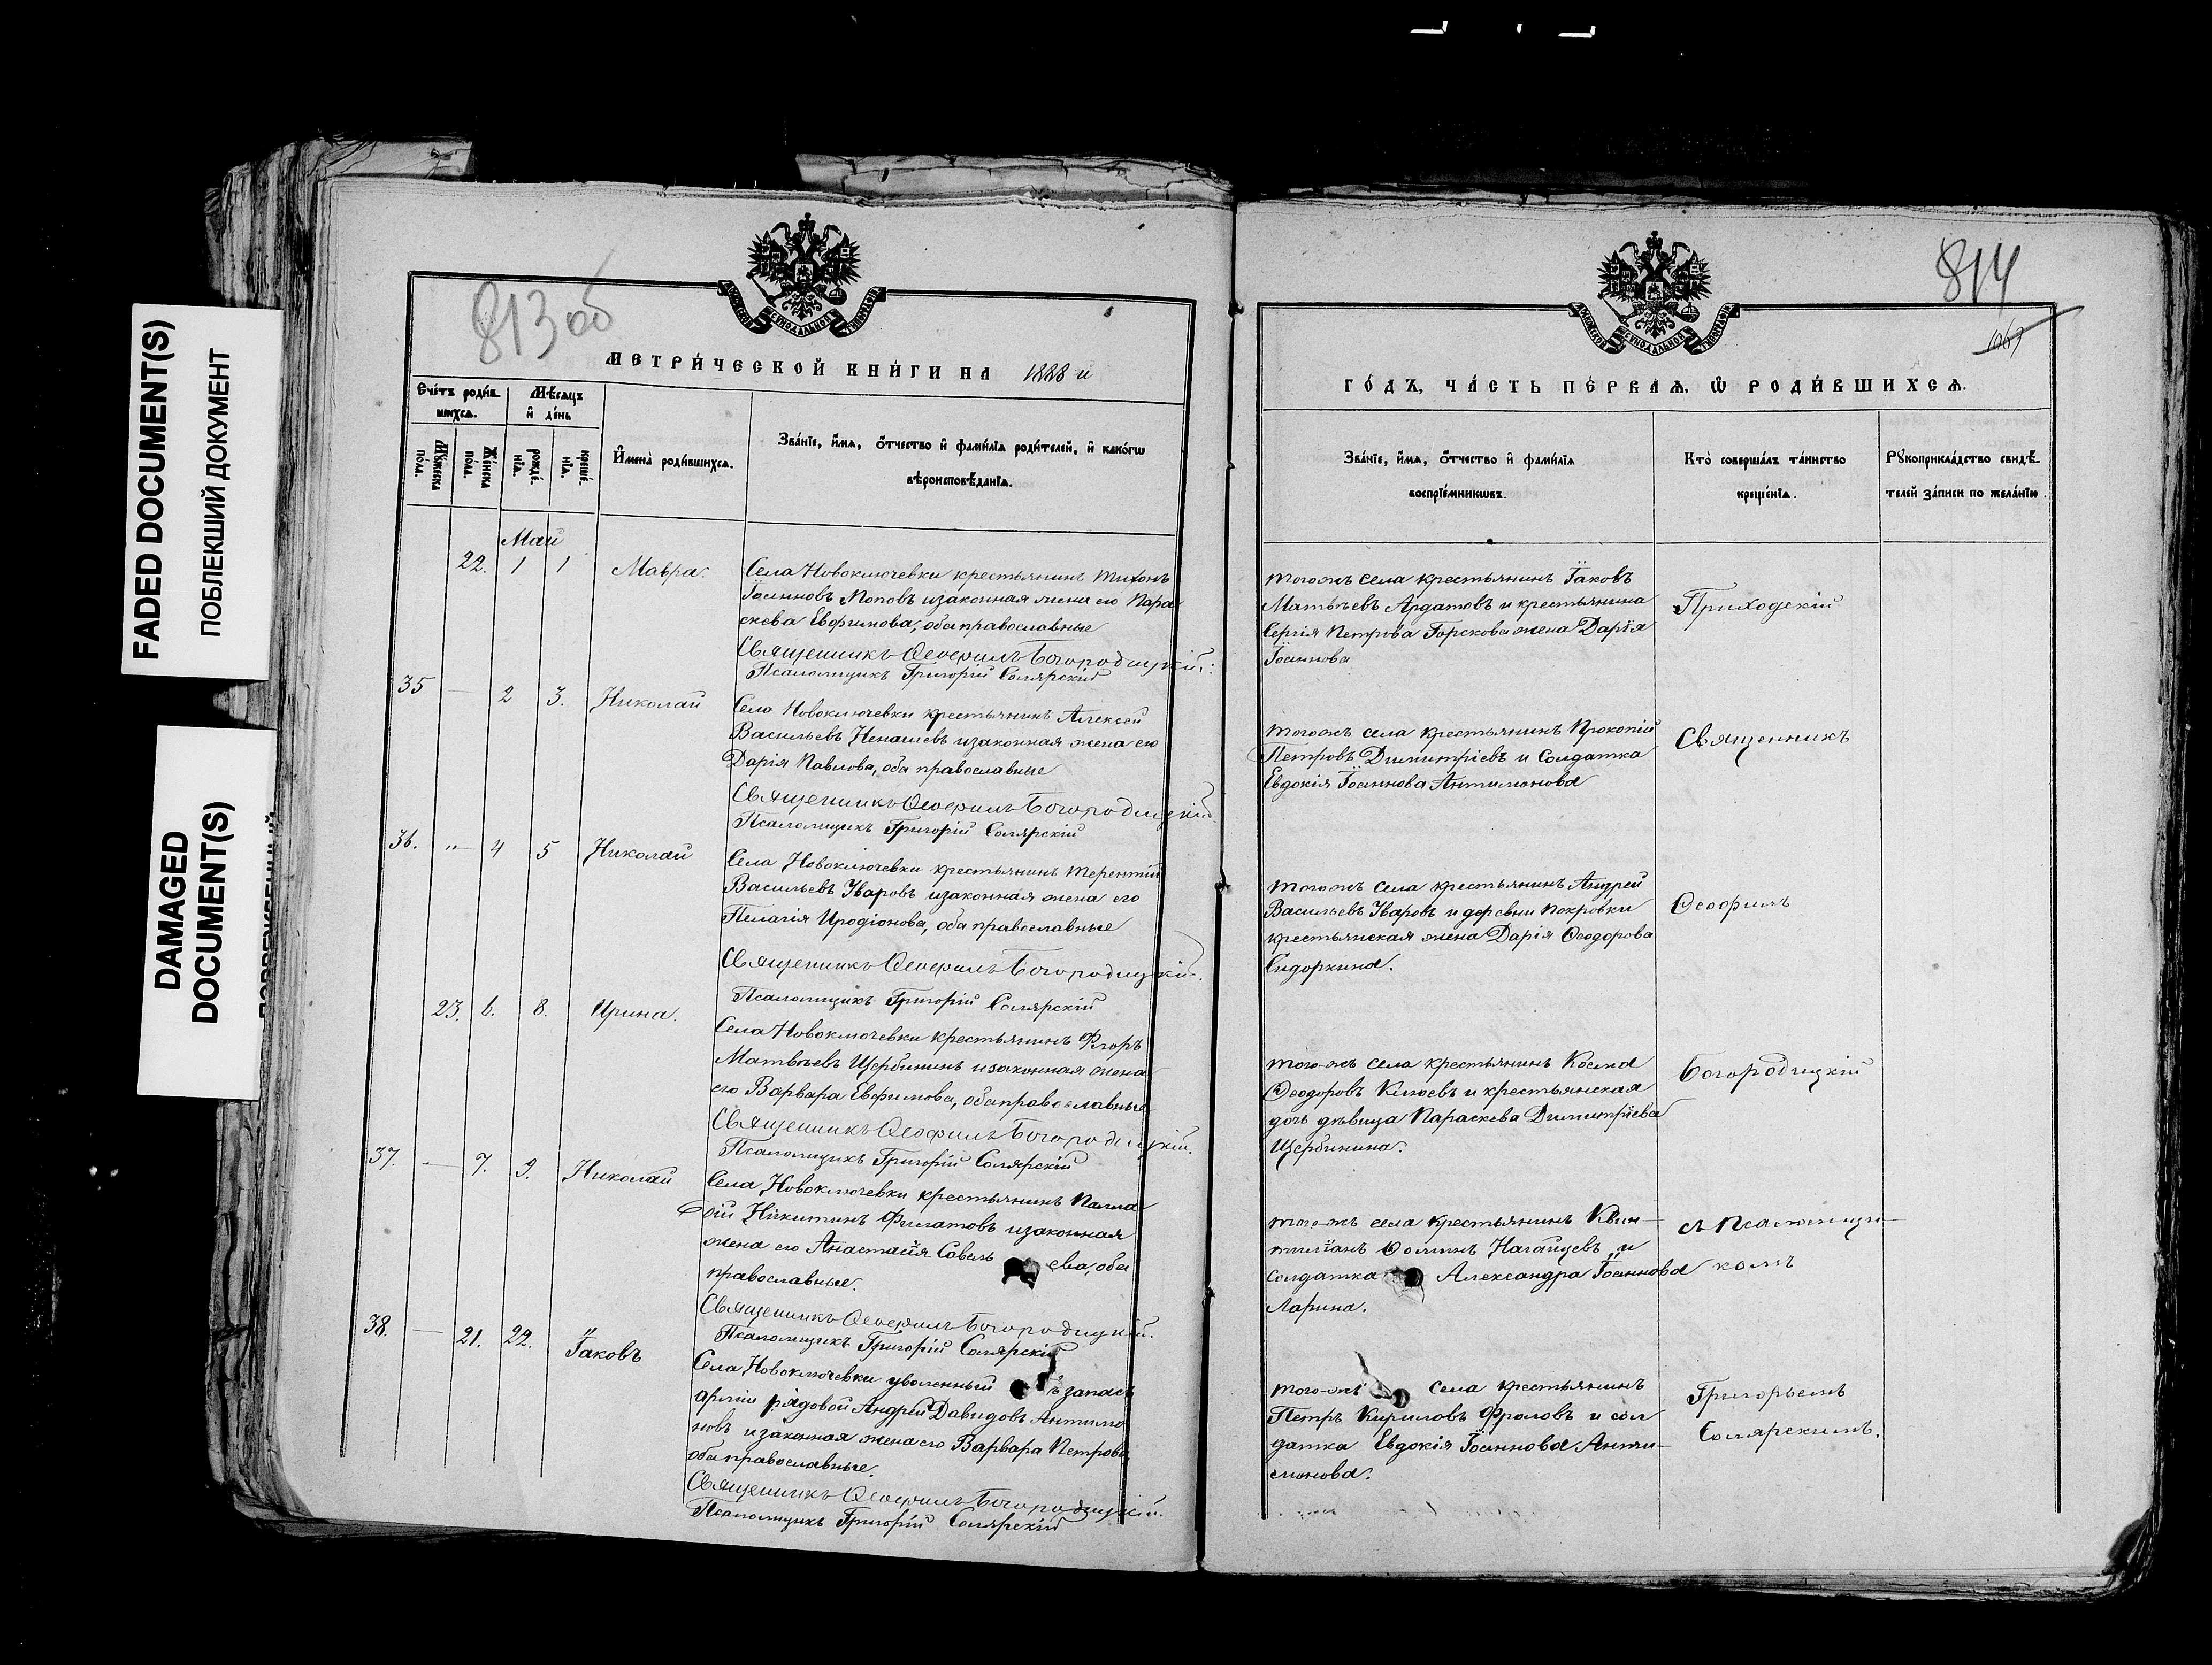 FADED DOCUMENT(S)
ПОБЛЕКШИЙ ДОКУМЕНТ
DAMAGED
DOCUMENT(S)
813 об
МЕТРИ́ЧЕСКОЙ КНИ́ГИ НА 1888 й
Сче́тъ роди́в-
шихсѧ.
Мѣ́сѧцъ
и҆ де́нь
Мꙋ́жеска
по́ла.
Же́нска
по́ла.
рожде́-
нїѧ.
креще́-
нїѧ.
И҆мена̀ роди́вшихсѧ.
Зва́нїе, и҆́мѧ, ѻ҆́тчество и҆ фами́лїѧ роди́телей, и҆ како́гѡ
вѣроисповѣ́данїѧ.
Май
22. 1 1 Мавра.
Села Новоключевки крестьянинъ Тихонъ
Іоанновъ Поповъ и законная жена его Пара
скева Евфимова, оба православные
Священникъ Ѳеофилъ Богородицкій.
Псаломщикъ Григорій Солярскій
35 — 2 3. Николай
Села Новоключевки крестьянинъ Алексей
Васильевъ Ненашевъ и законная жена его
Дарія Павлова, оба православные
Священникъ Ѳеофилъ Богородицкій.
Псаломщикъ Григорій Солярскій
36. „— 4 5 Николай
Села Новоключевки крестьянинъ Терентій
Васильевъ Уваровъ и законная жена его
Пелагія Иродіонова, оба православные
Священникъ Ѳеофилъ Богородицкій.
Псаломщикъ Григорій Солярскій
23. 6. 8. Ирина.
Села Новоключевки крестьянинъ Флоръ
Матвѣевъ Щербининъ и законная жена
его Варвара Евфимова, оба православные
Священникъ Ѳеофилъ Богородицкій.
Псаломщикъ Григорій Солярскій
37. — 7. 9. Николай
Села Новоключевки крестьянинъ Палла-
дій Никитинъ Филатовъ и законная
жена его Анастасія Савель ева, оба
православные.
Священникъ Ѳеофилъ Богородицкій.
Псаломщикъ Григорій Солярскій
38. — 21. 22. Іаковъ
Села Новоключевки уволенный въ запасъ
арміи рядовой Андрей Давидовъ Антимо
новъ и законная жена его Варвара Петрова,
оба православные.
Священникъ Ѳеофилъ Богородицкій.
Псаломщикъ Григорій Солярскій
814
1067
ГО́ДЪ, ЧА́СТЬ ПЕ́РВАѦ, Ѡ҆ РОДИ́ВШИХСѦ.
Зва́нїе, и҆́мѧ, ѻ҆́тчество и҆ фами́лїѧ
воспрїе́мникѡвъ.
Кто̀ соверша́лъ та́инство
креще́нїѧ.
Рꙋкоприкла́дство свидѣ́-
телей за́писи по жела́нїю.
того-жъ села крестьянинъ Іаковъ
Матвѣевъ Ардатовъ и крестьянина
Сергія Петрова Горскова жена Дарія
Іоаннова
Приходскій
того-жъ села крестьянинъ Прокопій
Петровъ Димитріевъ и солдатка
Евдокія Іоаннова Антимонова
Священникъ
того-жъ села крестьянинъ Андрей
Васильевъ Уваровъ и деревни Покровки
крестьянская жена Дарія Ѳеодорова
Сидоркина.
Ѳеофилъ
того-жъ села крестьянинъ Косма
Ѳеодоровъ Клюевъ и крестьянская
дочь дѣвица Параскева Димитріева
Щербинина.
Богородицкій
того-жъ села крестьянинъ Квин-
тиліанъ Ѳоминъ Нагайцевъ и
солдатка Александра Іоаннова
Ларина.
съ псаломщи-
комъ
того-жъ села крестьянинъ
Петръ Кириловъ Фроловъ и сол
датка Евдокія Іоаннова Анти-
монова.
Григорьемъ
Солярскимъ.